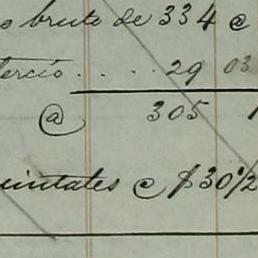 o bruto de 334 @
tercio . . . . 29 03
@ 305 1
uintales @ $30 1/2